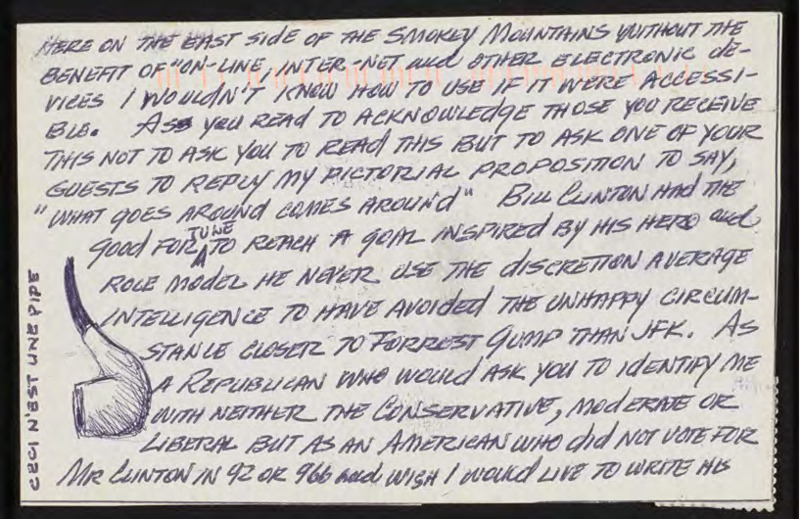 HERE ON THE EAST SIDE OF THE SMOKEY MOUNTAINS WITHOUT THE
BENEFIT OF "ON-LINE, INTER-NET and OTHER ELECTRONIC dE-
VICES I WOULDN'T KNOW HOW TO USE IF IT WERE ACCESSI-
BLE. ASs you READ TO ACKNOWLEDGE THOSE YOU RECEIVE
THIS NOT TO ASK YOU TO READ THIS BUT TO ASK ONE OF YOUR
GUESTS TO REPLY MY PICTORIAL PROPOSITION TO SAY,
"WHAT GOES AROUND COMES AROUND" BILL CLINTON HAD THE
GOOD FOR TUNE TO REACH A GOAL INSPIRED BY HIS HERO and
ROLE MODEL HE NEVER USE THE DISCRETION AVERAGE
INTELLIGENCE TO HAVE AVOIDED THE UNHAPPY CIRCUM-
STANCE CLOSER TO FORREST GUMP THAN JFK. AS
A REPUBLICAN WHO WOULD ASK YOU TO IDENTIFY ME
WITH NEITHER THE CONSERVATIVE, MODERATE OR
LIBERAL BUT AS AN AMERICAN WHO did NOT VOTE FOR
MR CLINTON IN 92 OR 966 and WISH I WOULD LIVE TO WRITE HIS
CECI N'EST UNE PIPE